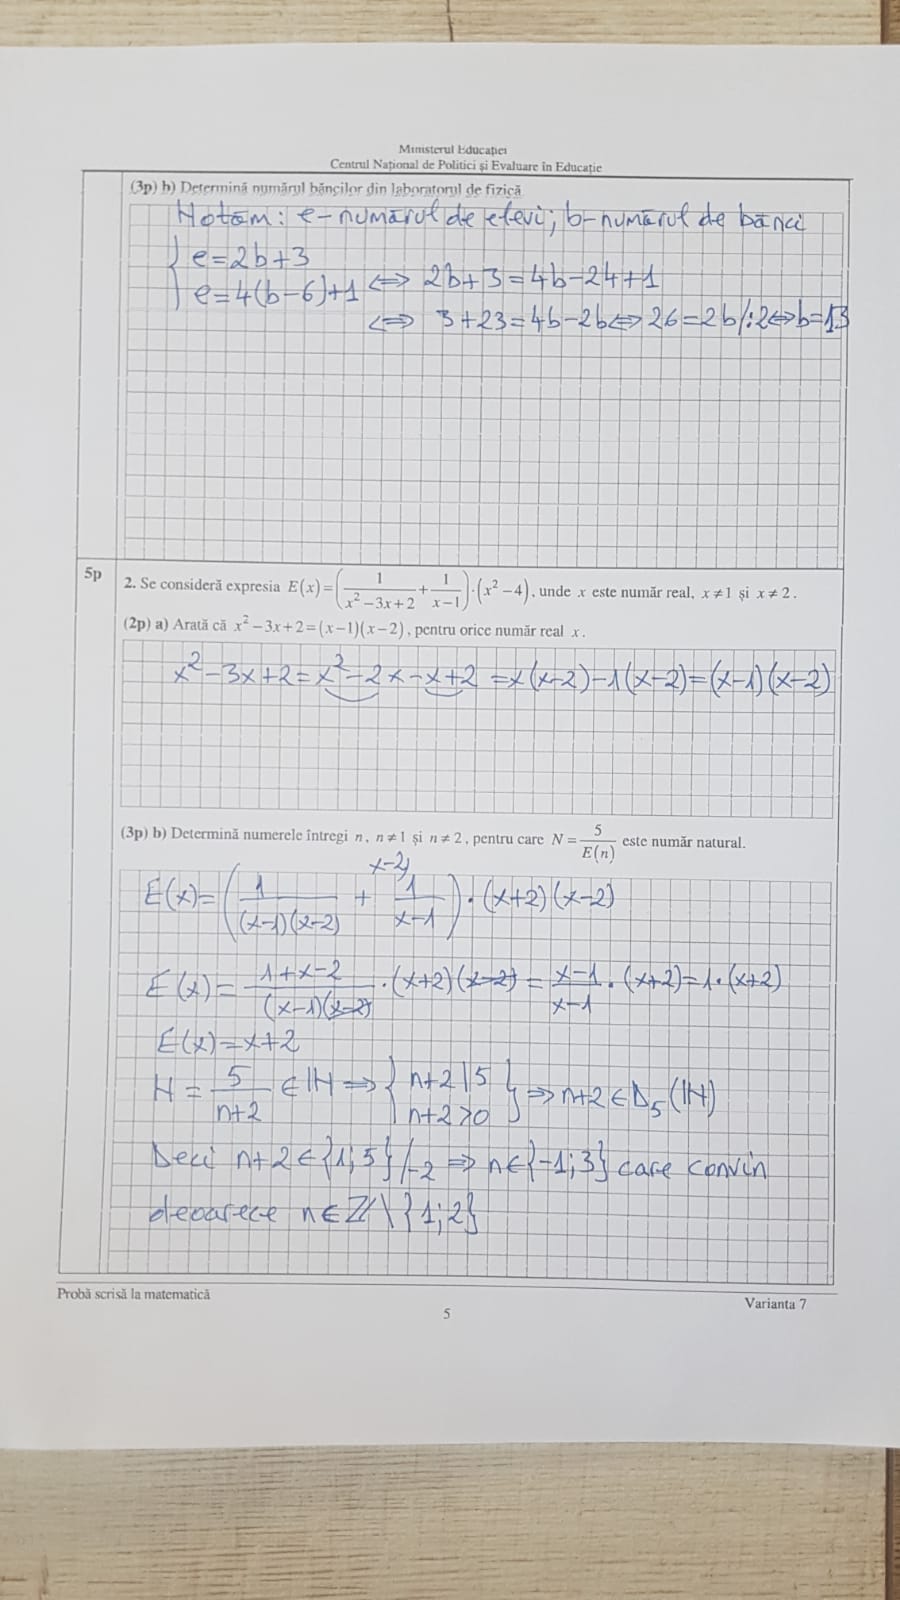 Ministerul Educației
Centrul Național de Politici și Evaluare în Educație
(3p) b) Determină numărul băncilor din laboratorul de fizică.
Notăm: e-numărul de elevi; b-numărul de bănci
{ e=2b+3
{ e=4(b-6)+1 ⇔ 2b+3=4b-24+1
⇔ 3+23=4b-2b ⇔ 26=2b/:2 ⇔ b=13
5p
2. Se consideră expresia E(x)=(1/(x²-3x+2)+1/(x-1))·(x²-4), unde x este număr real, x≠1 și x≠2.
(2p) a) Arată că x²-3x+2=(x-1)(x-2), pentru orice număr real x.
x²-3x+2=x²-2x-x+2=x(x-2)-1(x-2)=(x-1)(x-2)
(3p) b) Determină numerele întregi n, n≠1 și n≠2, pentru care N=5/E(n) este număr natural.
E(x)=(1/((x-1)(x-2)) + ˣ⁻²⁾1/(x-1))·(x+2)(x-2)
E(x)=(1+x-2)/((x-1)(x-2))·(x+2)(x-2)=(x-1)/(x-1)·(x+2)=1·(x+2)
E(x)=x+2
N=5/(n+2)∈ℕ⇒{n+2|5 n+2>0}⇒n+2∈D₅(ℕ)
Deci n+2∈{1;5}/-2⇒n∈{-1;3} care convin
deoarece n∈ℤ\{1;2}
Probă scrisă la matematică
Varianta 7
5